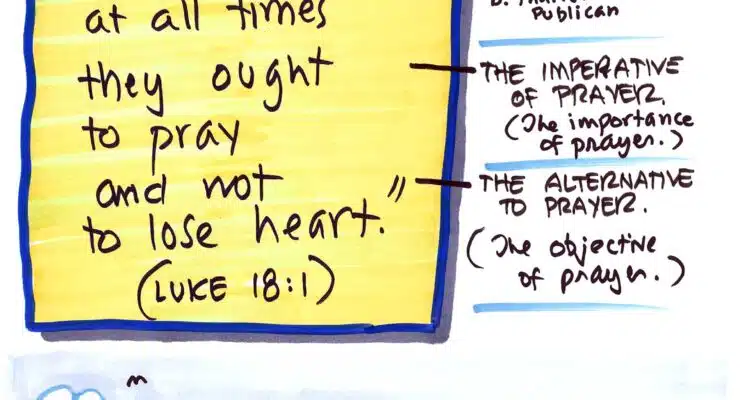 at all times
they ought
to pray
and not
to lose heart."
(LUKE 18:1)
Publican
THE IMPERATIVE
OF PRAYER.
(The importance
of prayer.)
THE ALTERNATIVE
TO PRAYER.
(The objective
of prayer.)